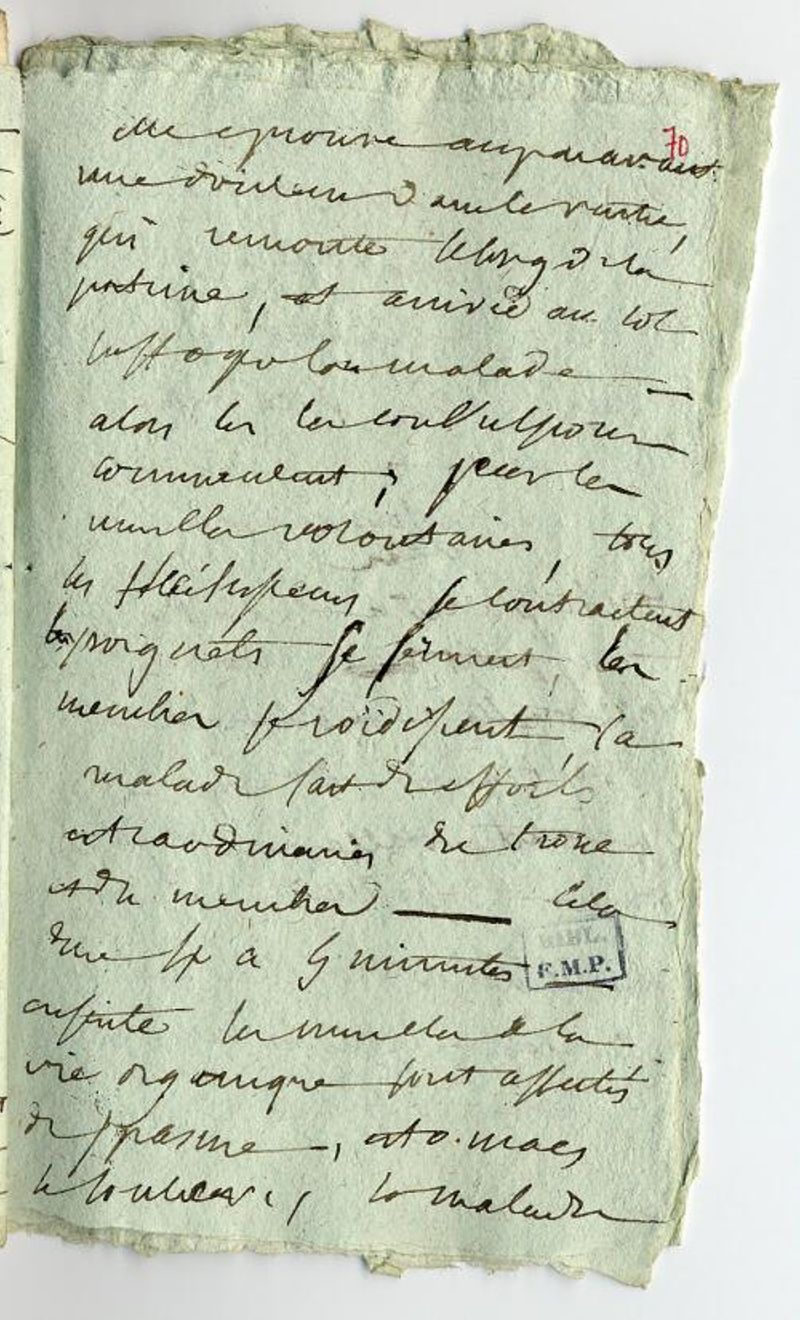 70
elle eprouve auparavant
une douleur dans le ventre,
qui remonte le long de la
poitrine, et arrivée au col
suffoque la malade —
alors les convulsions
commencent; pour les
muscles volontaires, tous
les fléchisseurs se contractent
les poignets se ferment, les
membres se roidissent, la
malade fait des efforts
extraordinaires du tronc
et des membres — Cela
dure 4 a 5 minutes —
BIBL.
F.M.P.
ensuite les muscles de la
vie organique sont affectés
de spasme, estomac
se souleve, la malade